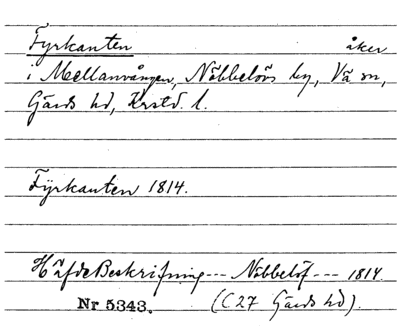 Fyrkanten åker
i Mellanvången, Nöbbelövs by, Vä sn,
Gärds hd, Krstd. l.
Fÿrkanten 1814.
HäfdeBeskrifning --- Nöbbelöf --- 1814.
Nr 5343. (C27 Gärds hd).